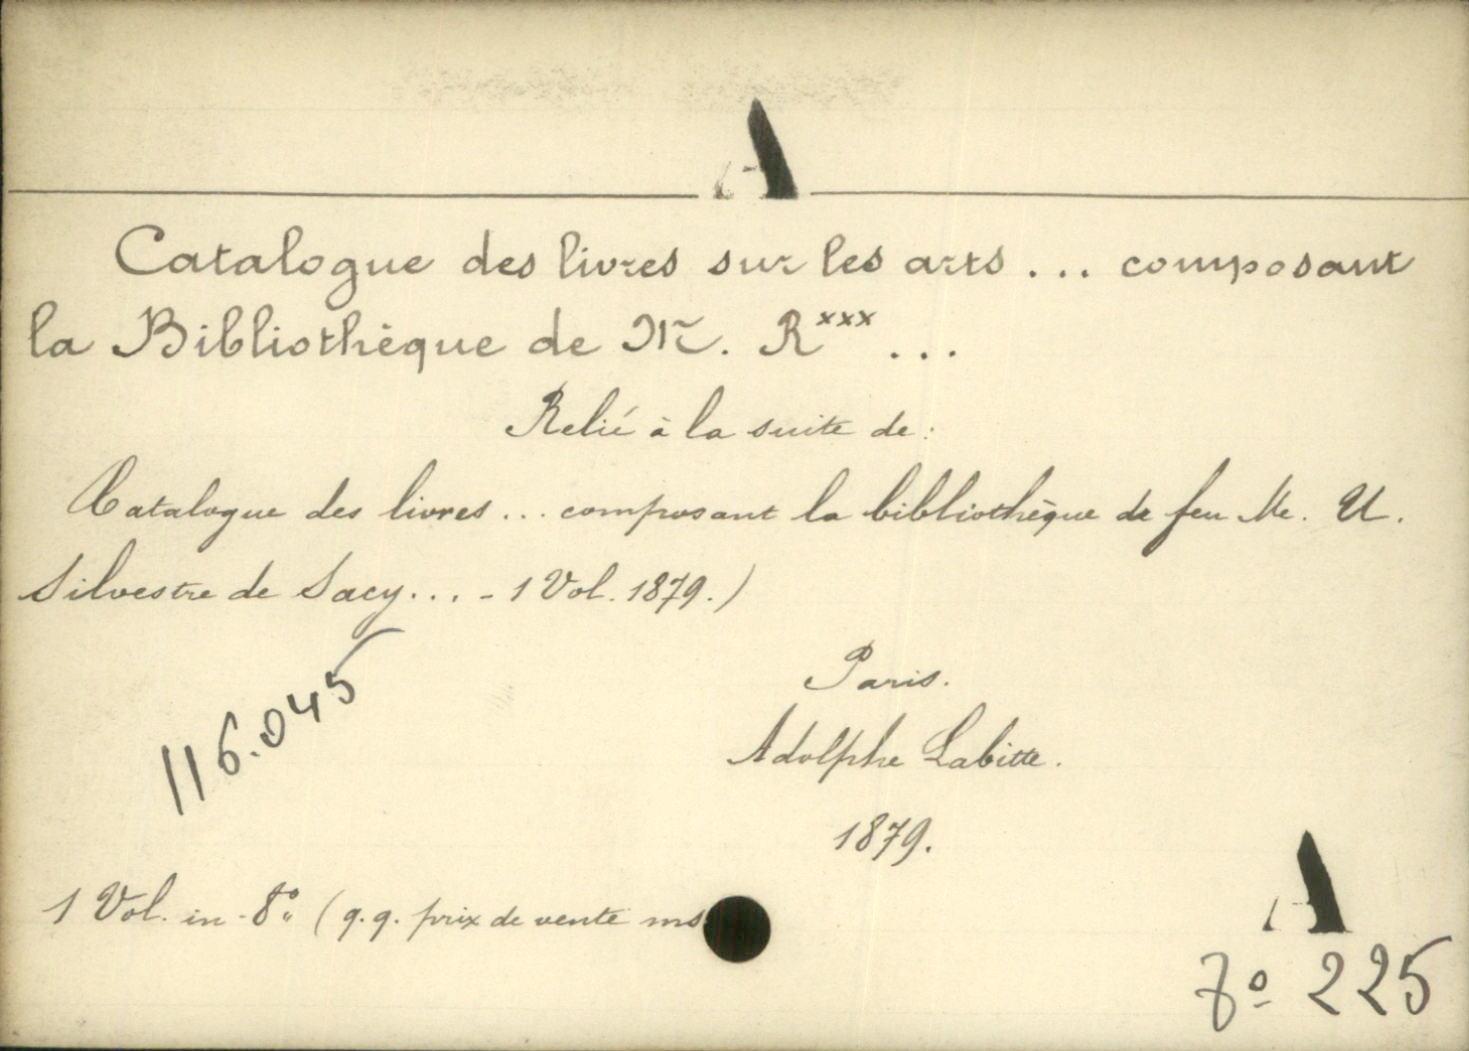 A
Catalogue des livres sur les arts ... composant
la Bibliothèque de M. Rxxx ...
Relié à la suite de :
Catalogue des livres ... composant la bibliothèque de feu Me. U.
Silvestre de Sacy... - 1 Vol. 1879.)
116.045
Paris.
Adolphe Labitte.
1879.
1 Vol. in-8° (q.q. prix de vente ms
A
8° 225